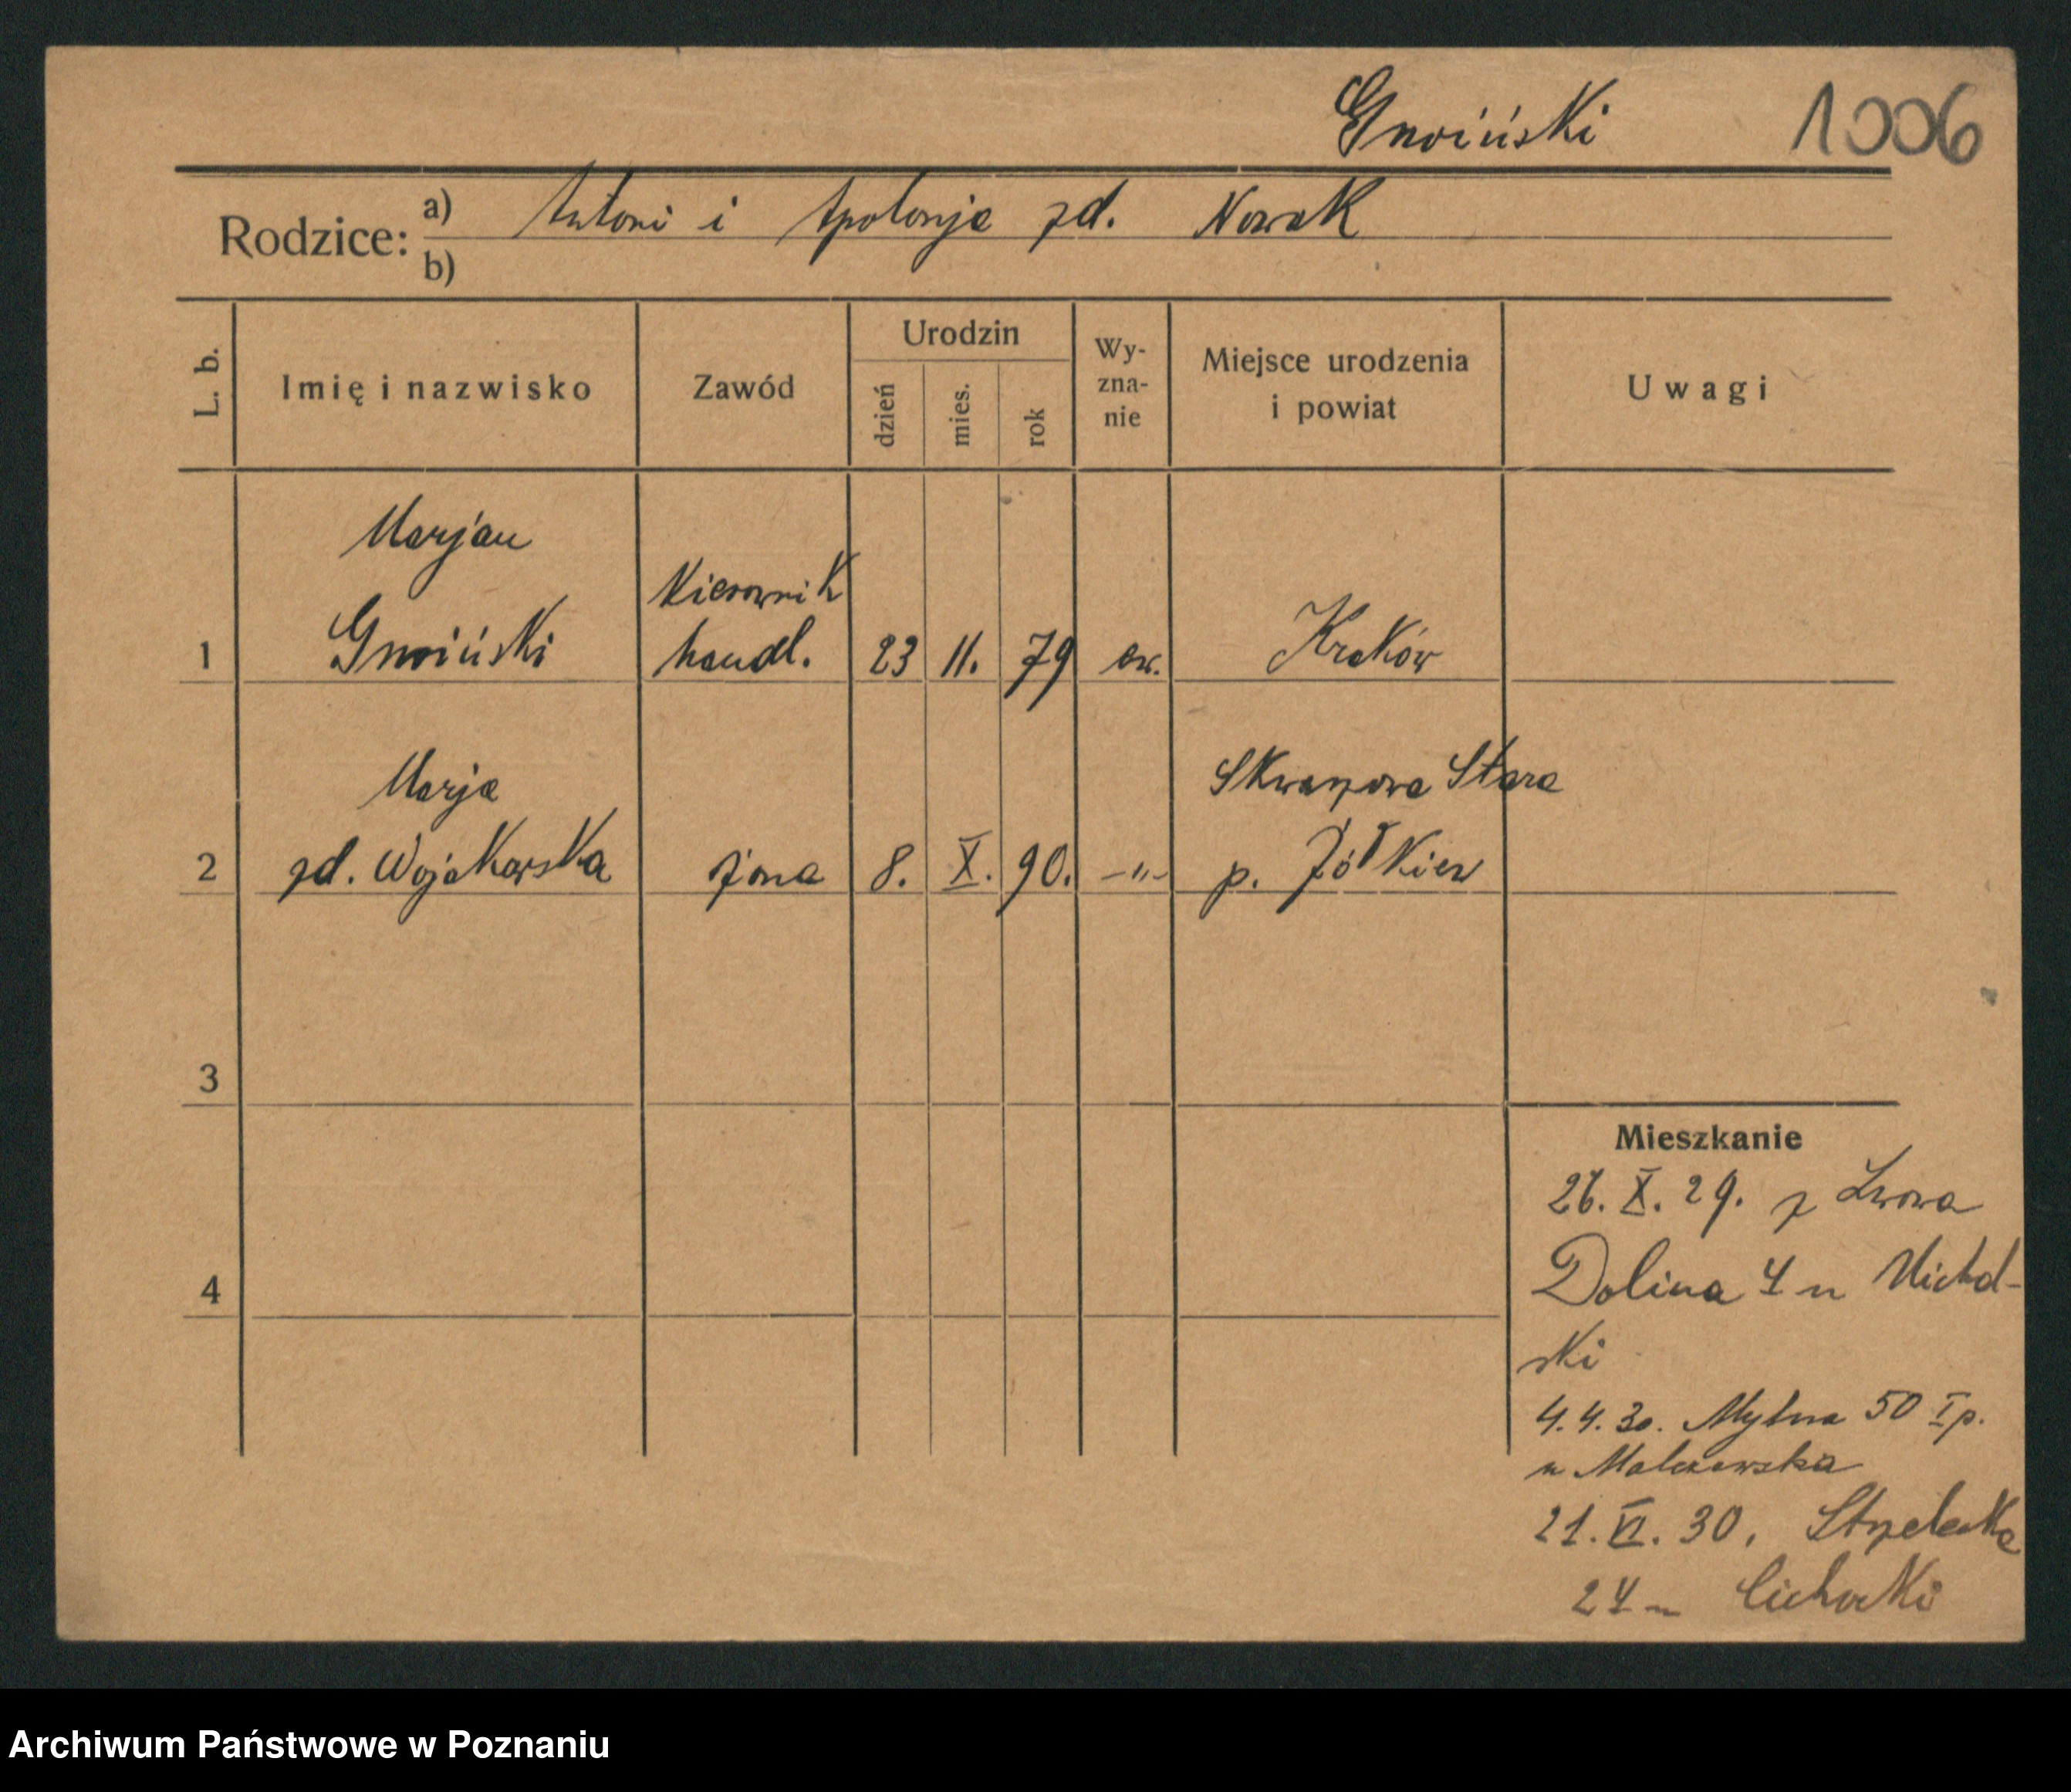 Gnoiński 1006
Rodzice: a) Antoni i Apolonja zd. Nowak
b)
L. b. Imię i nazwisko Zawód Urodzin dzień mies. rok Wy-zna-nie Miejsce urodzenia i powiat Uwagi
Marjan
Kierownik
1 Gnoiński handl. 23 11. 79 ew. Kraków
Marja Skwarzowa Stara
2 zd. Wojakowska żona 8. X. 90. -"- p. Żółkiew
3
Mieszkanie
26. X. 29. z Lwowa
4 Dolina 4 u Michal-
ski
4.4.30. Mylna 50 I p.
u Malczewska
21. VI. 30. Strzelecka
24 u Cichocki
Archiwum Państwowe w Poznaniu